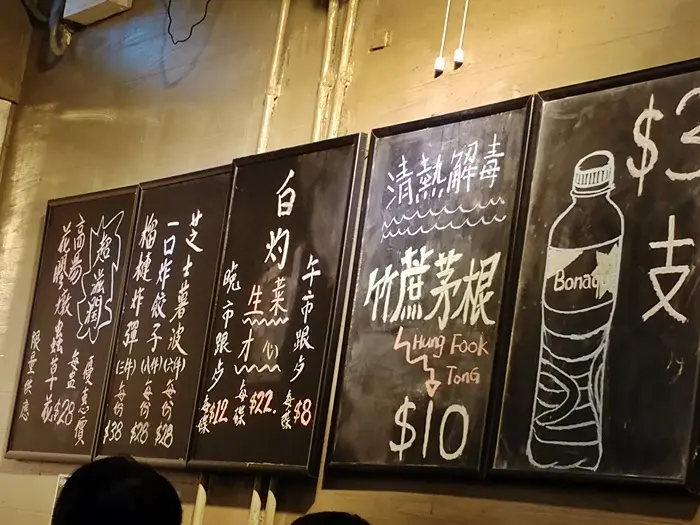 超滋潤
高湯
花膠燉蟲草花
優惠價
每盅$28
限量供應
芝士薯波(六件)每份$28
一口炸餃子(八件)每份$28
榴槤炸彈(三件)每份$38
白灼
生菜
才心
每碟$22.
午市跟歺
每碟$8
晚市跟歺
每碟$12
清熱解毒
竹蔗茅根
Hung Fook
Tong
$10
Bonaqa
$3
支